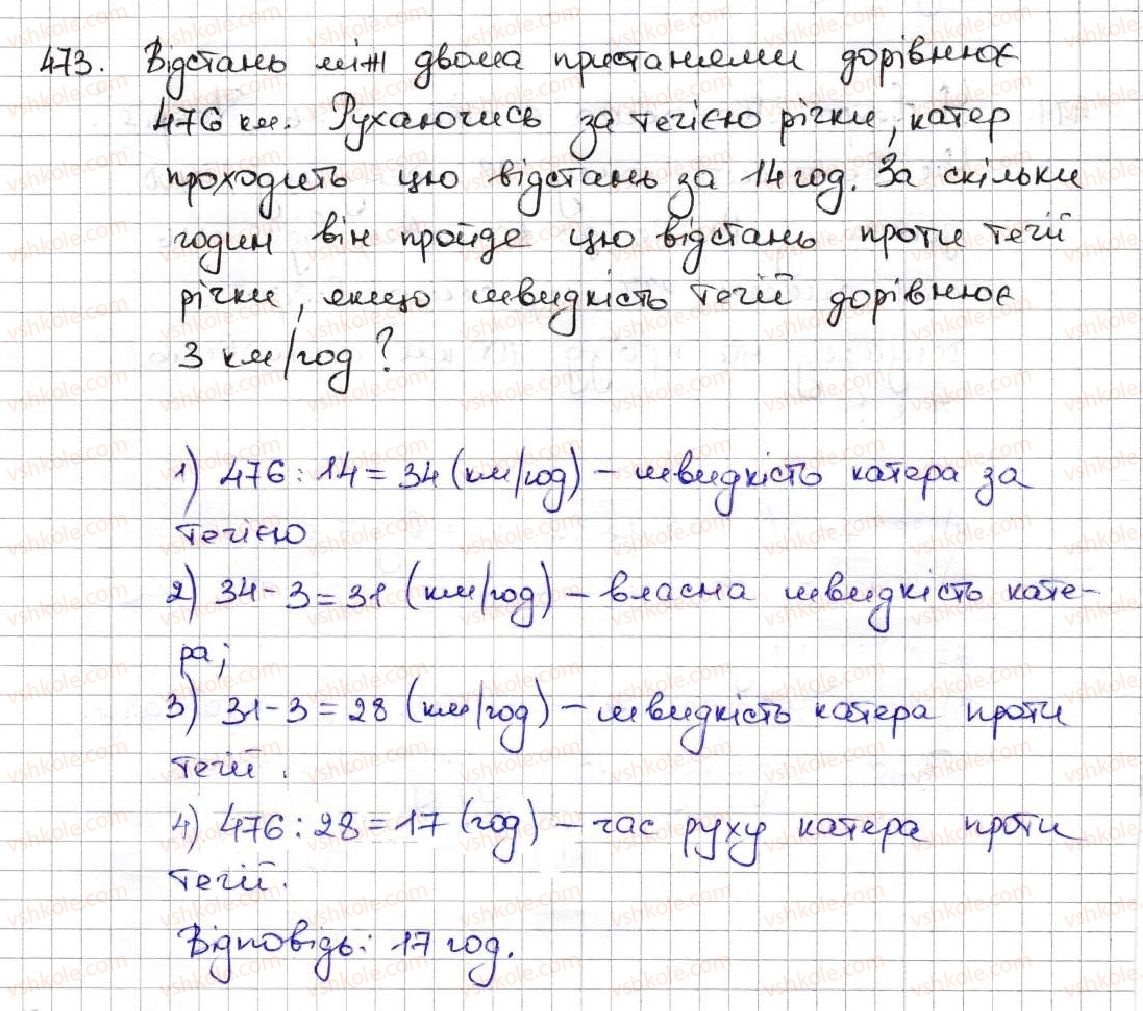 473. Відстань між двома пристанями дорівнює
476 км. Рухаючись за течією річки, катер
проходить цю відстань за 14 год. За скільки
годин він пройде цю відстань проти течії
річки, якщо швидкість течії дорівнює
3 км/год ?
1) 476 : 14 = 34 (км/год) – швидкість катера за
течією
2) 34 - 3 = 31 (км/год) – власна швидкість кате-
ра;
3) 31 - 3 = 28 (км/год) – швидкість катера проти
течії.
4) 476 : 28 = 17 (год) – час руху катера проти
течії.
Відповідь: 17 год.